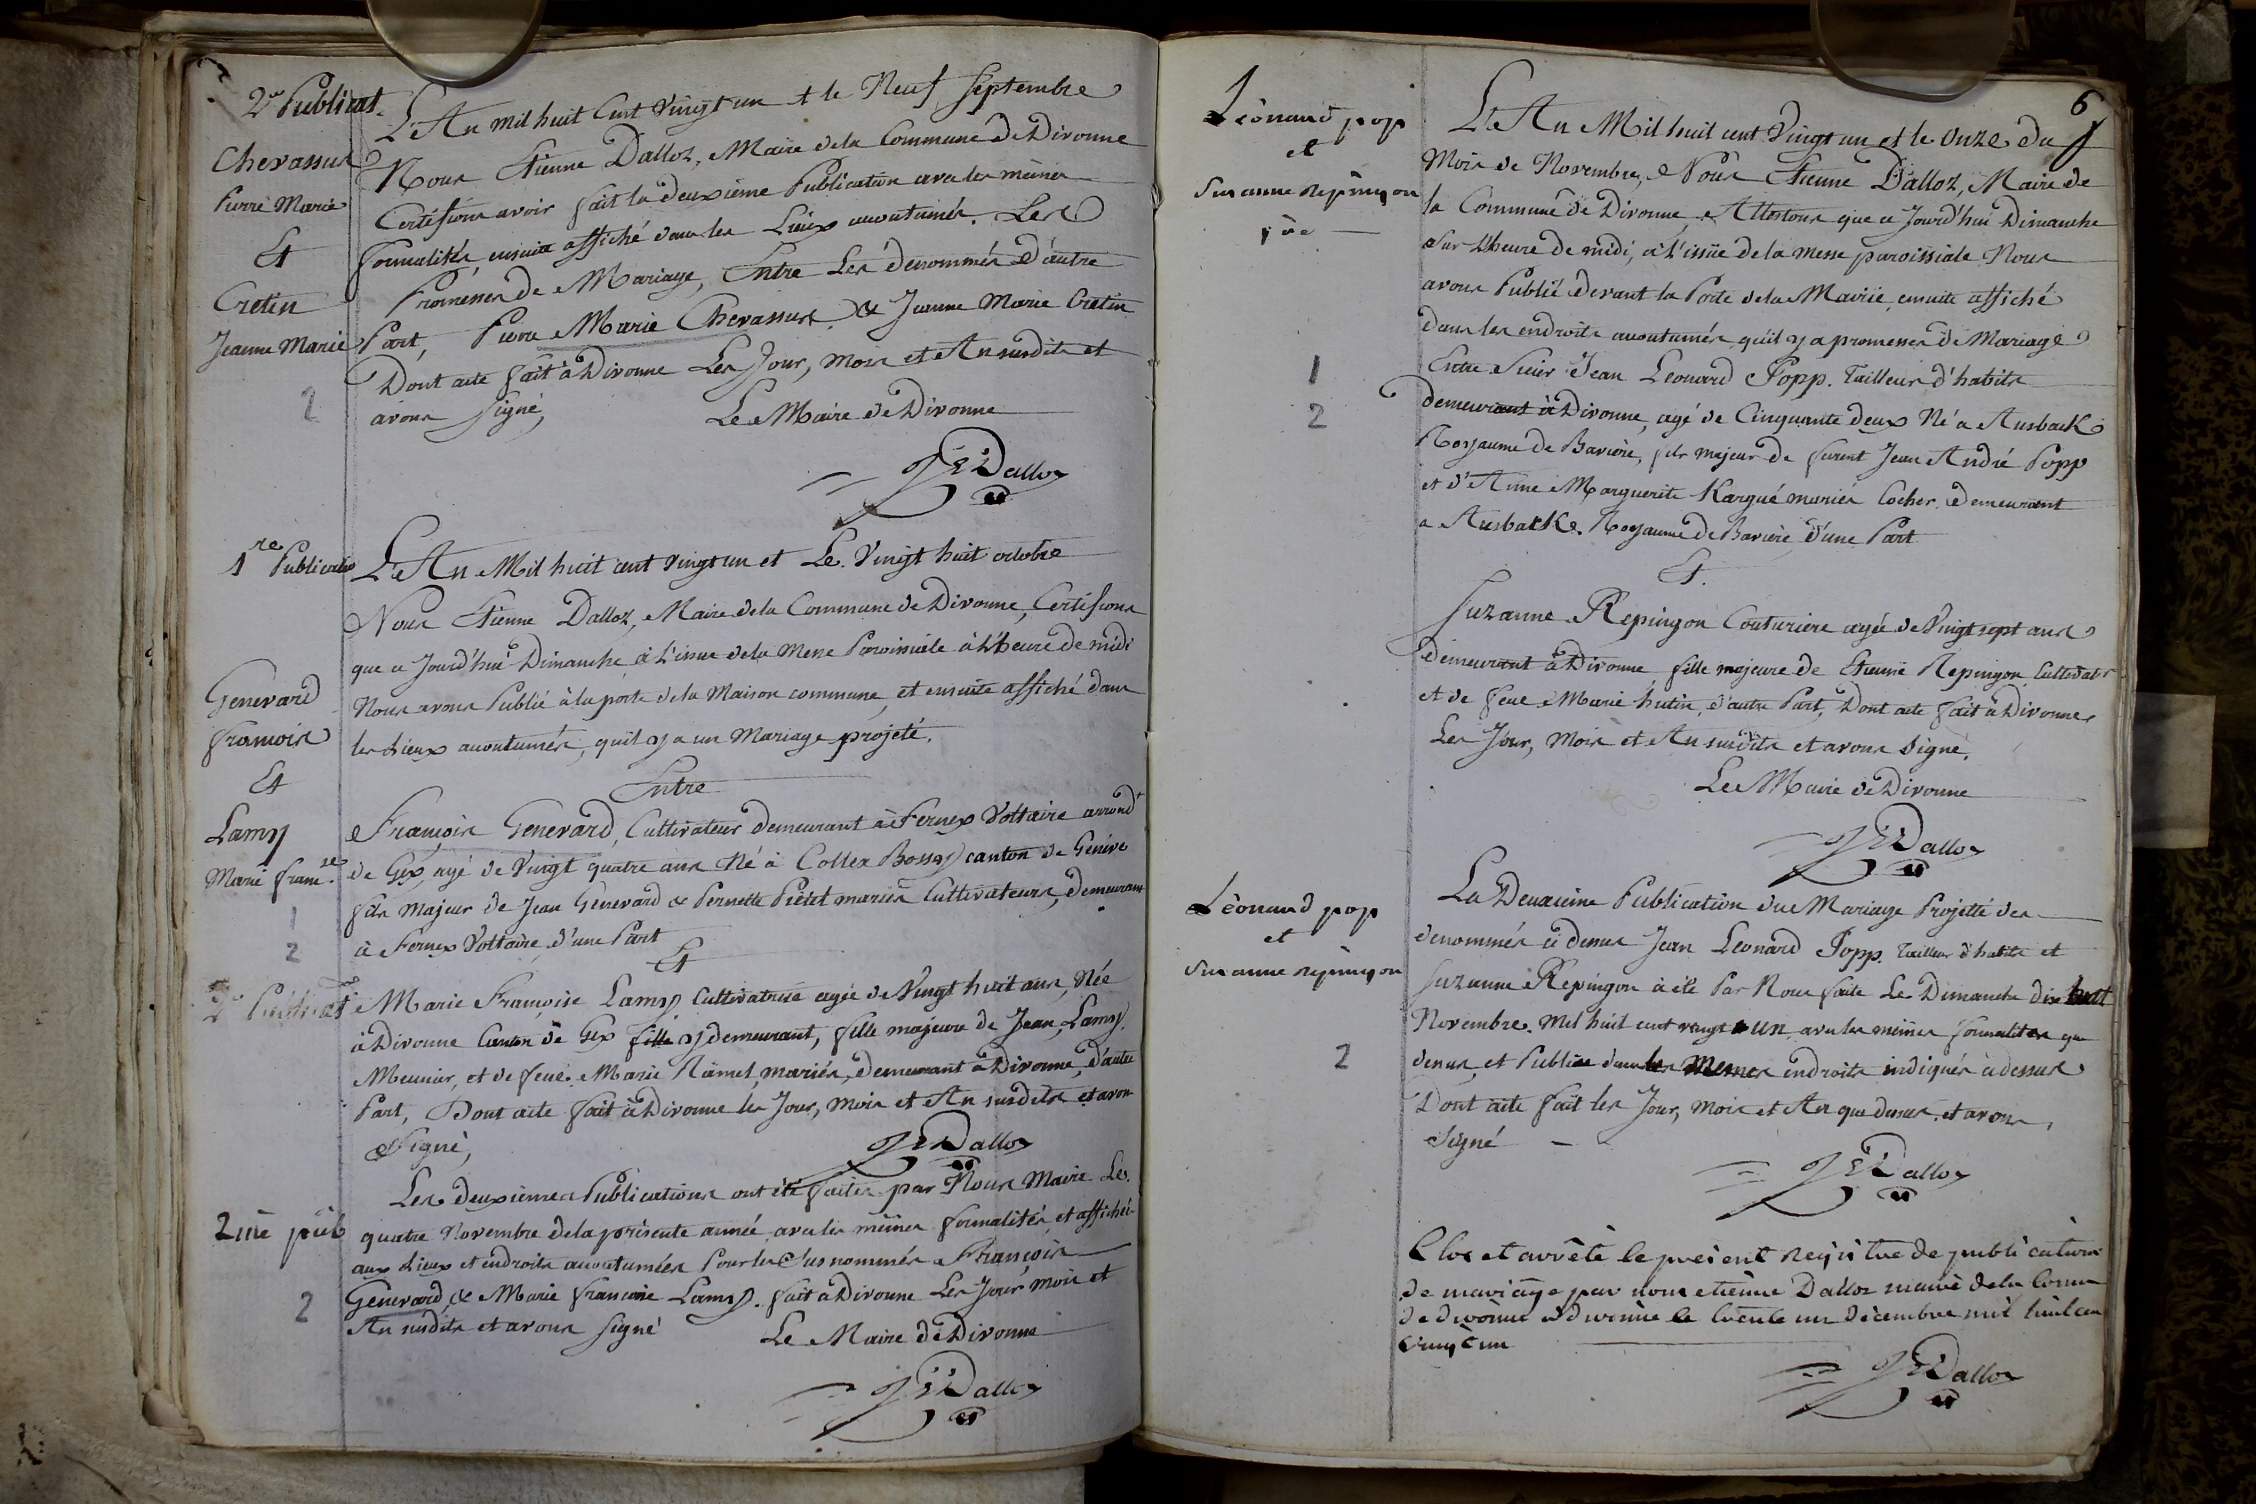 2e Publicat.
L'An mil huit Cent Vingt un et le Neuf Septembre
Chevassus
Pierre Marie
Et
Cretin
Jeanne Marie
2
Nous Etienne Dalloz, Maire de la Commune de Divonne
Certifions avoir fait la deuxième Publication avec les mêmes
formalités, ensuite affiché dans les Lieux accoutumés. Les
Promesses de Mariage, Entre Les dénommés d'autre
Part, Pierre Marie Chevassus & Jeanne Marie Cretin
Dont acte fait à Divonne Les Jour, Mois et An susdits et
avons signé,
Le Maire de Divonne
JE Dalloz
1re Publicatio
L'An Mil huit cent vingt un et Le Vingt huit octobre
Nous Etienne Dalloz, Maire de la Commune de Divonne, Certifions
que ce Jourd'hui Dimanche à L'issue de la Messe Paroissiale à l'heure de midi
Nous avons Publié à la porte de la Maison commune, et ensuite affiché dans
les Lieux accoutumés, quil y a un Mariage projeté.
Entre
Genevard
francois
Et
Lamy
Marie franc.se
1
2
François Genevard, Cultivateur demeurant à Fernex Voltaire arrond.t
de Gex, agé de Vingt quatre ans Né à Collex Bossy canton de Genève
fils Majeur de Jean Genevard & Pernette Pictet mariés Cultivateurs, demeurans
à Fernex Voltaire, d'une Part
Et
2e Publicat
Marie Françoise Lamy Cultivatrice agée de Vingt huit ans, Née
à Divonne Canton de Gex fille y demeurant, fille majeure de Jean Lamy
Meunier, et de feue Marie Hamel, mariés, demeurant à Divonne, d'autre
Part, Dont acte fait à Divonne les Jour, Mois et An susdits et avons
Signé,
JE Dalloz
Les deuxièmes Publications ont été faites par Nous Maire Le
2me pub
2
quatre Novembre de la présente année, avec les mêmes formalités, et affichés
aux Lieux et endroits accoutumés Pour les Susnommés François
Genevard, & Marie francoise Lamy. fait à Divonne Les Jour mois et
An susdits et avons signé
Le Maire de Divonne
JE Dalloz
6
1
Léonand pop
et
Susanne Repingon
1
2
L'An Mil huit cent Vingt un et le onze du
Mois de Novembre, Nous Etienne Dalloz, Maire de
la Commune de Divonne, Attestons que ce Jourd'hui Dimanche
sur L'heure de midi, à L'issüe de la messe paroissiale Nous
avons Publié devant la Porte de la Mairie ensuite affiché
dans les endroits accoutumés quil y a promesses de Mariage
Entre Sieur Jean Leonard Popp. Tailleur d'habits
demeurant à Divonne, agé de Cinquante deux Né a Ausback
Royaume de Baviére, fils majeur de furent Jean André Popp
et d'Anne Marguerite Kargué mariés Cocher demeurant
a Ausback. Royaume de Baviére d'une Part
Et.
Suzanne Repingon Couturiere agée de Vingt sept ans
demeurant à Divonne, fille majeure de Etienne Repingon Cultivatr
et de feue Marie hutin, d'autre Part, Dont acte fait à Divonne
Les Jour, Mois et An susdits et avons signé.
Le Maire de Divonne
JE Dalloz
Léonand pop
et
Susanne Repingon
2
La Deuxieme Publication du Mariage Projetté des
denommés ci dessus Jean Leonard Popp. Tailleur d'habits et
Suzanne Repingon à été Par Nous faite Le Dimanche dix huit
Novembre. Mil huit cent vingt un avec les mêmes formalités que
dessus, et Publiée dans les Memes endroits indiqués cidessus
Dont acte fait les Jour, Mois et An que dessus, et avons
Signé
JE Dalloz
Clos et arrêté le present Registre de publications
de mariage par nous etienne Dalloz maire de la Comm
de divonne à divonne le trente un décembre mil huit cen
vingt un
JE Dalloz